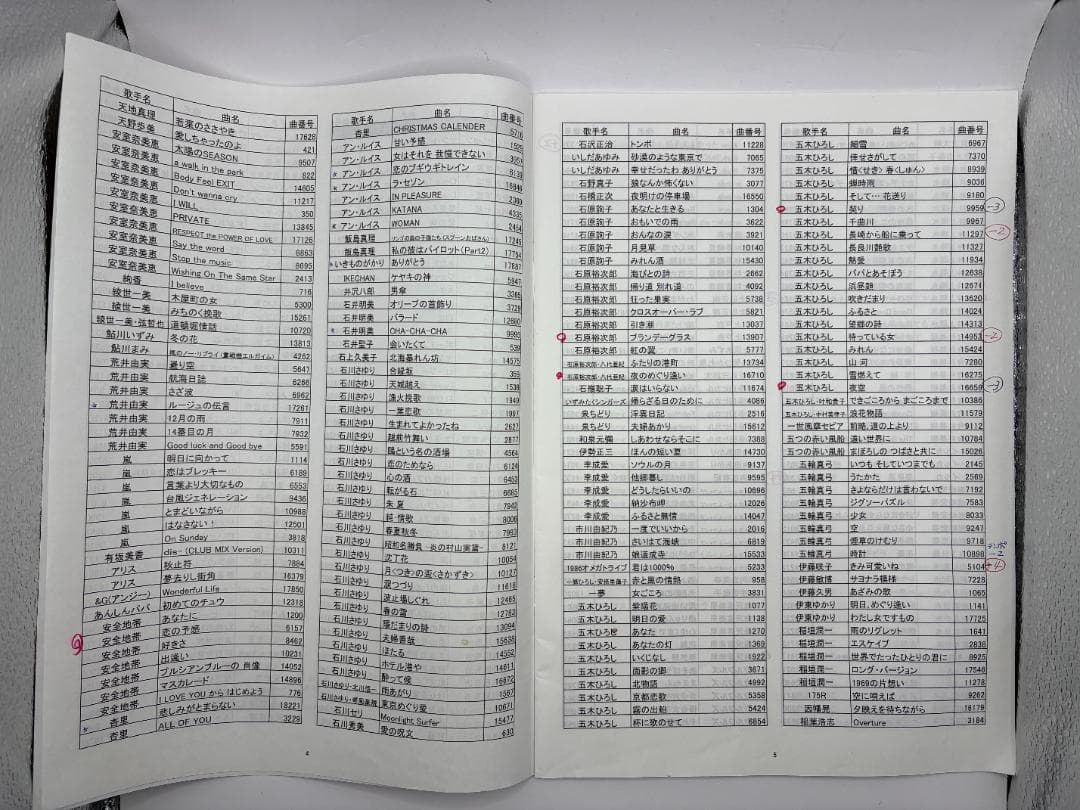 歌手名 曲名 曲番号
天地真理 若葉のささやき 17628
愛しちゃったのよ 421
安室奈美恵 太陽のSEASON 9507
安室奈美恵 a walk in the park 822
安室奈美恵 Body Feel EXIT 14805
安室奈美恵 Don't wanna cry 11217
安室奈美恵 I WILL 350
安室奈美恵 PRIVATE 13845
安室奈美恵 RESPECT the POWER OF LOVE 17126
安室奈美恵 Say the word 8863
安室奈美恵 Stop the music 8695
安室奈美恵 Wishing On The Same Star 2413
絢香 I believe 716
綾世一美 木屋町の女 5300
綾世一美 みちのく挽歌 15261
綾世一美・弦哲也 道頓堀情話 10720
鮎川いずみ 冬の花 13813
鮎川まみ 風のノー・リプライ(重戦機エルガイム) 4262
荒井由実 曇り空 5647
荒井由実 航海日誌 6266
荒井由実 さざ波 6962
荒井由実 ルージュの伝言 17261
荒井由実 12月の雨 7911
荒井由実 14番目の月 7932
荒井由実 Good luck and Good bye 5591
嵐 明日に向かって 1114
嵐 恋はブレッキー 6189
嵐 言葉より大切なもの 6553
嵐 台風ジェネレーション 9436
嵐 とまどいながら 10988
嵐 はなさない! 12501
嵐 On Sunday 3818
有坂美香 dis- (CLUB MIX Version) 10311
アリス 秋止符 7884
アリス 夢去りし街角 16379
&G(アンジー) Wonderful Life 17850
あんしんパパ 初めてのチュウ 12318
安全地帯 あなたに 1200
安全地帯 恋の予感 6157
安全地帯 好きさ 8462
安全地帯 出逢い 10231
安全地帯 ブルシアンブルーの肖像 14052
安全地帯 マスカレード 14896
安全地帯 I LOVE YOUからはじめよう 776
安全地帯 悲しみがとまらない 18221
杏里 ALL OF YOU 3229
歌手名 曲名 曲番号
杏里 CHRISTMAS CALENDER 5716
アン・ルイス 甘い予感
アン・ルイス 女はそれを我慢できない
アン・ルイス 恋のブギウギトレイン
アン・ルイス ラ・セゾン
アン・ルイス IN PLEASURE
アン・ルイス KATANA 4335
アン・ルイス WOMAN 2454
飯島真理 リンゴの森の子猫たち(スプーンおばさん) 17245
飯島真理 私の彼はパイロット(Part2) 17734
いきものがかり ありがとう 17687
IKECHAN ケヤキの神 5947
井沢八郎 男傘 3365
石井明美 オリーブの首飾り 3728
石井明美 バラード 12680
石井明美 CHA-CHA-CHA 9995
石井聖子 会いたくて 530
石上久美子 北海暮れん坊 14575
石川さゆり 合縁坂 355
石川さゆり 天城越え 1538
石川さゆり 漁火挽歌 1949
石川さゆり 一葉恋歌 1997
石川さゆり 生まれてよかったね 2627
石川さゆり 越前竹舞い 2817
石川さゆり 鴎という名の酒場 4564
石川さゆり 恋のためなら 6124
石川さゆり 心の酒 6452
石川さゆり 転がる石 6685
石川さゆり 朱夏 7942
石川さゆり 純・情歌 8006
石川さゆり 春夏秋冬 7993
石川さゆり 昭和名勝負 -炎の村山実篇- 8121
石川さゆり 沈丁花 10054
石川さゆり 月<つき>の盃<さかずき> 10127
石川さゆり 涙つづり 11618
石川さゆり 波止場しぐれ 12485
石川さゆり 春の雪 12763
石川さゆり 陽だまりの詩 13094
石川さゆり 夫婦善哉 15635
石川さゆり ほたる 14552
石川さゆり ホテル港や 14811
石川さゆり 酔って候 16872
雨あがり 1567
東京めぐり愛 10671
石川セリ Moonlight Surfer 15477
石川秀美 愛の呪文 630
4
歌手名 曲名 曲番号
石沢正治 トンボ 11228
いしだあゆみ 砂漠のような東京で 7065
いしだあゆみ 幸せだったわ ありがとう 7375
石野真子 狼なんか怖くない 3077
石橋正次 夜明けの停車場 16550
石原詢子 あなたと生きる 1304
石原詢子 おもいでの雨 3622
石原詢子 おんなの涙 3921
石原詢子 月見草 10140
石原詢子 みれん酒 15430
石原裕次郎 海びとの詩 2662
石原裕次郎 帰り道 別れ道 4092
石原裕次郎 狂った果実 5738
石原裕次郎 クロスオーバー・ラブ 5821
石原裕次郎 引き潮 13037
石原裕次郎 ブランデーグラス 13907
石原裕次郎 紅の翼 5777
石原裕次郎・八代亜紀 ふたりの港町 13734
石原裕次郎・八代亜紀 夜のめぐり逢い 16710
石嶺聡子 涙はいらない 11674
いずみたくシンガーズ 帰らざる日のために 4086
泉ちどり 浮雲日記 2516
泉ちどり 夫婦あかり 15612
和泉元彌 しあわせならそこに 7388
伊勢正三 ほんの短い夏 14730
李成愛 ソウルの月 9137
李成愛 他郷暮し 9595
李成愛 どうしたらいいの 10696
李成愛 納沙布岬 12004
李成愛 ふるさと無情 14047
市川由紀乃 一度でいいから 2016
市川由紀乃 さいはて海峡 6819
市川由紀乃 娘道成寺 15533
1986オメガトライブ 君は1000% 5233
赤と黒の情熱 958
一夢 女ごころ 3831
五木ひろし 紫陽花 1077
五木ひろし 明日の愛 1138
五木ひろし あなた 1270
五木ひろし あなたの灯 1369
五木ひろし いくじなし 1922
五木ひろし 面影の郷 3671
五木ひろし 北物語 4992
五木ひろし 京都恋歌 5358
五木ひろし 霧の出船 5424
五木ひろし 杯に歌のせて 6854
歌手名 曲名 曲番号
五木ひろし 細雪 6967
五木ひろし 倖せさがして 7370
五木ひろし 情<せき> 春<しゅん> 8939
五木ひろし 蝉時雨 9036
五木ひろし そして…花送り 9160
五木ひろし 契り 9959 -3
五木ひろし 千曲川 9967
五木ひろし 長崎から船に乗って 11297 -2
五木ひろし 長良川艶歌 11327
五木ひろし 熱愛 11934
五木ひろし パパとあそぼう 12638
五木ひろし 浜昼顔 12671
五木ひろし 吹きだまり 13620
五木ひろし ふるさと 14024
五木ひろし 望郷の詩 14313
五木ひろし 待っている女 14953 -2
五木ひろし みれん 15424
五木ひろし 山河 7280
五木ひろし 雪燃えて 16275
五木ひろし 夜空 16659 -3
五木ひろし・叶和貴子 できごころから まごころまで 10386
五木ひろし・中村美律子 浪花物語 11579
一世風靡セピア 前略、道の上より 9112
五つの赤い風船 遠い世界に 10784
五つの赤い風船 まぼろしの つばさと共に 15026
五輪真弓 いつも そしていつまでも 2145
五輪真弓 うたかた 2569
五輪真弓 さよならだけは言わないで 7192
五輪真弓 ジグソーパズル 7583
五輪真弓 少女 8033
五輪真弓 空 9247
五輪真弓 煙草のけむり 9718
五輪真弓 時計 10898 -2
伊藤咲子 きみ可愛いね 5104 +4
伊藤敏博 サヨナラ模様 7228
伊藤久男 あざみの歌 1065
伊東ゆかり 明日、めぐり逢い 1141
伊東ゆかり わたし女ですもの 17725
稲垣潤一 雨のリグレット 1641
稲垣潤一 エスケイプ 2838
稲垣潤一 世界でたったひとりの君に 8925
稲垣潤一 ロング・バージョン 17546
稲垣潤一 1969の片想い 11278
175R 空に唄えば 9262
因幡晃 夕映えを待ちながら 16179
稲葉浩志 Overture 3184
5